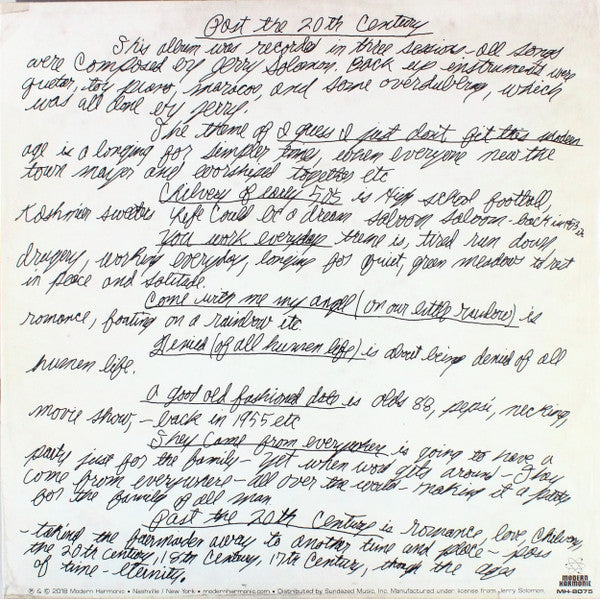 Past the 20th Century
This album was recorded in three sessions - all songs
were composed by Jerry Solomon. Back up instruments were
guetor, toy piano, maracoe, and some overdubering, which
was all done by Jerry.
The theme of I guess I just don't fit this modern
age is a longing for simpler times, when everyone new the
town mayor and worshiped together etc
Chelvery of early 50s is High school football,
Koshmier sweeters life could be a dream saboom saboom - back in 1953
You work everyday theme is, tired run down
drugery, working everyday, longing for quiet, green meadows to rest
in peace and solitude.
Come with me my angel (on our little rainbow) is
romance, floating on a rainbow etc
Denied (of all human life) is about being denied of all
human life.
A good old fashioned date is olds 88, pepsi, necking,
movie show, - back in 1955 etc
They Come From everywhere is going to have a
party just for the family - yet when word gets around - They
come from everywhere - all over the world - making it a party
for the family of all man
Past the 20th Century is romance, love, Chelvery,
- taking the fairmaiden away to another time and place - pass
the 20th century, 18th Century, 17th Century, though the ages
of time - eternity.
℗ & © 2018 Modern Harmonic • Nashville / New York • modernharmonic.com • Distributed by Sundazed Music, Inc. Manufactured under license from Jerry Solomon.
MODERN
HARMONIC
MH-8075